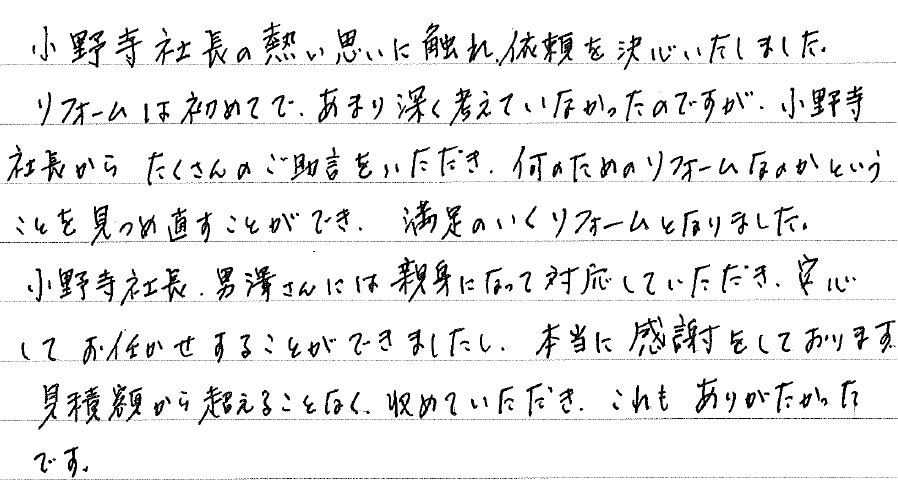 小野寺社長の熱い思いに触れ、依頼を決心いたしました。
リフォームは初めてで、あまり深く考えていなかったのですが、小野寺
社長から たくさんのご助言をいただき、何のためのリフォームなのかという
ことを見つめ直すことができ、満足のいくリフォームとなりました。
小野寺社長、男澤さんには親身になって対応していただき、安心
して お任せすることができましたし、本当に感謝をしております。
見積額から超えることなく、収めていただき、これも ありがたかった
です。